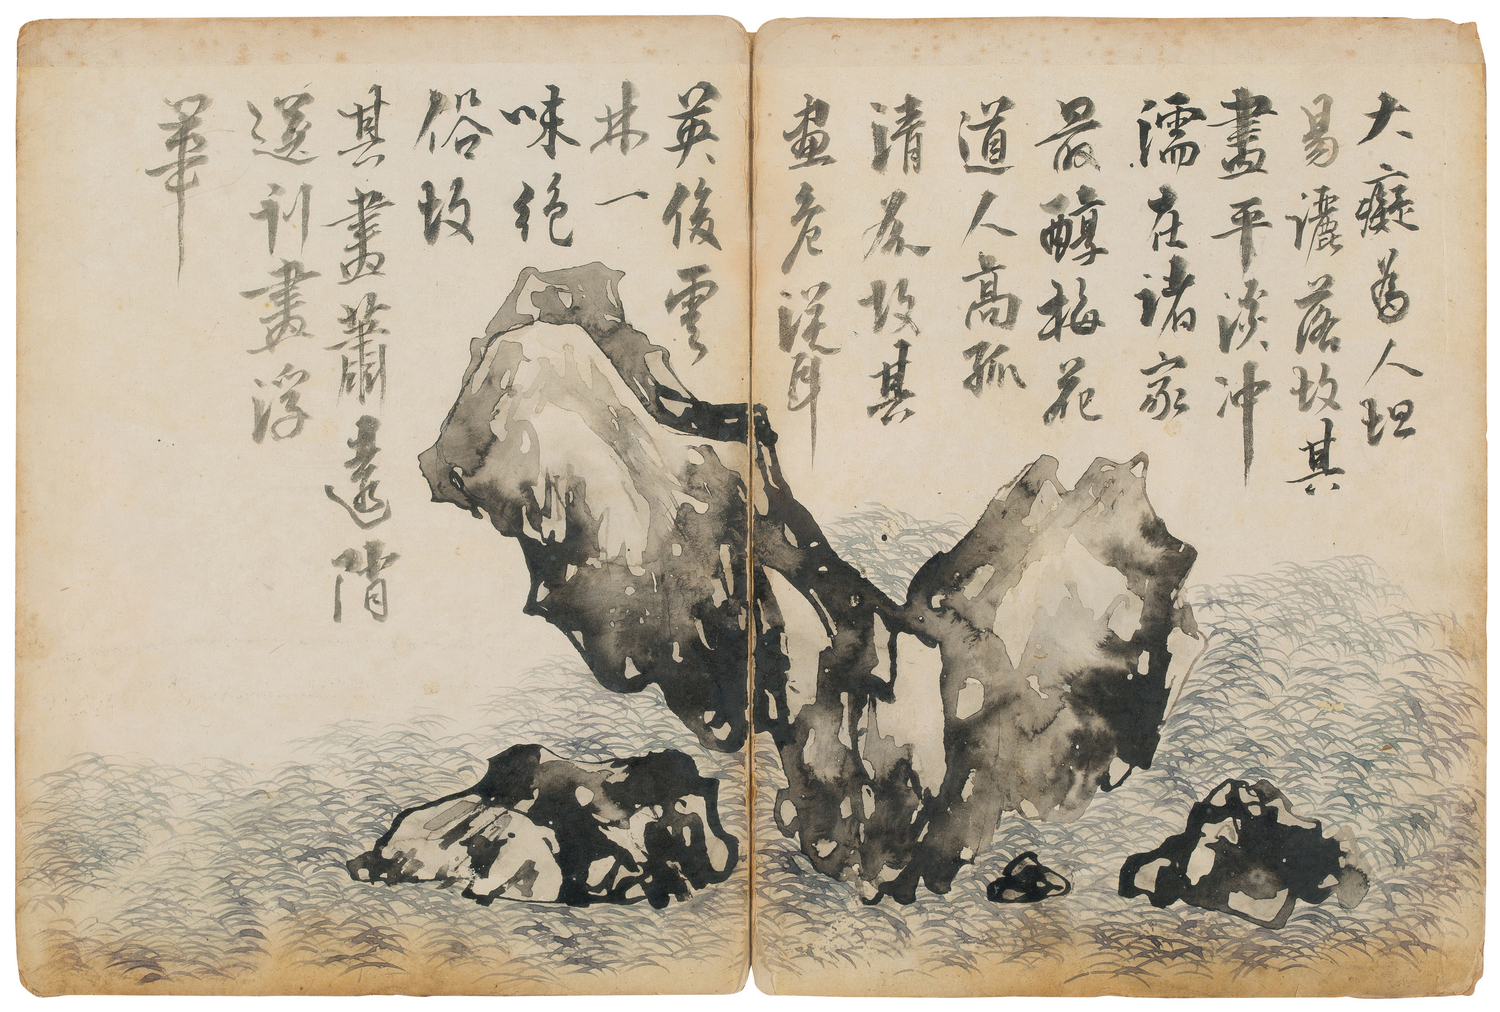 大癡為人坦
易灑落故其
畫平淡沖
濡在諸家
最醇梅花
道人高孤
清介故其
畫危聳
英俊雲
林一
味絕
俗故
其畫蕭遠峭
逸刊盡浮
華